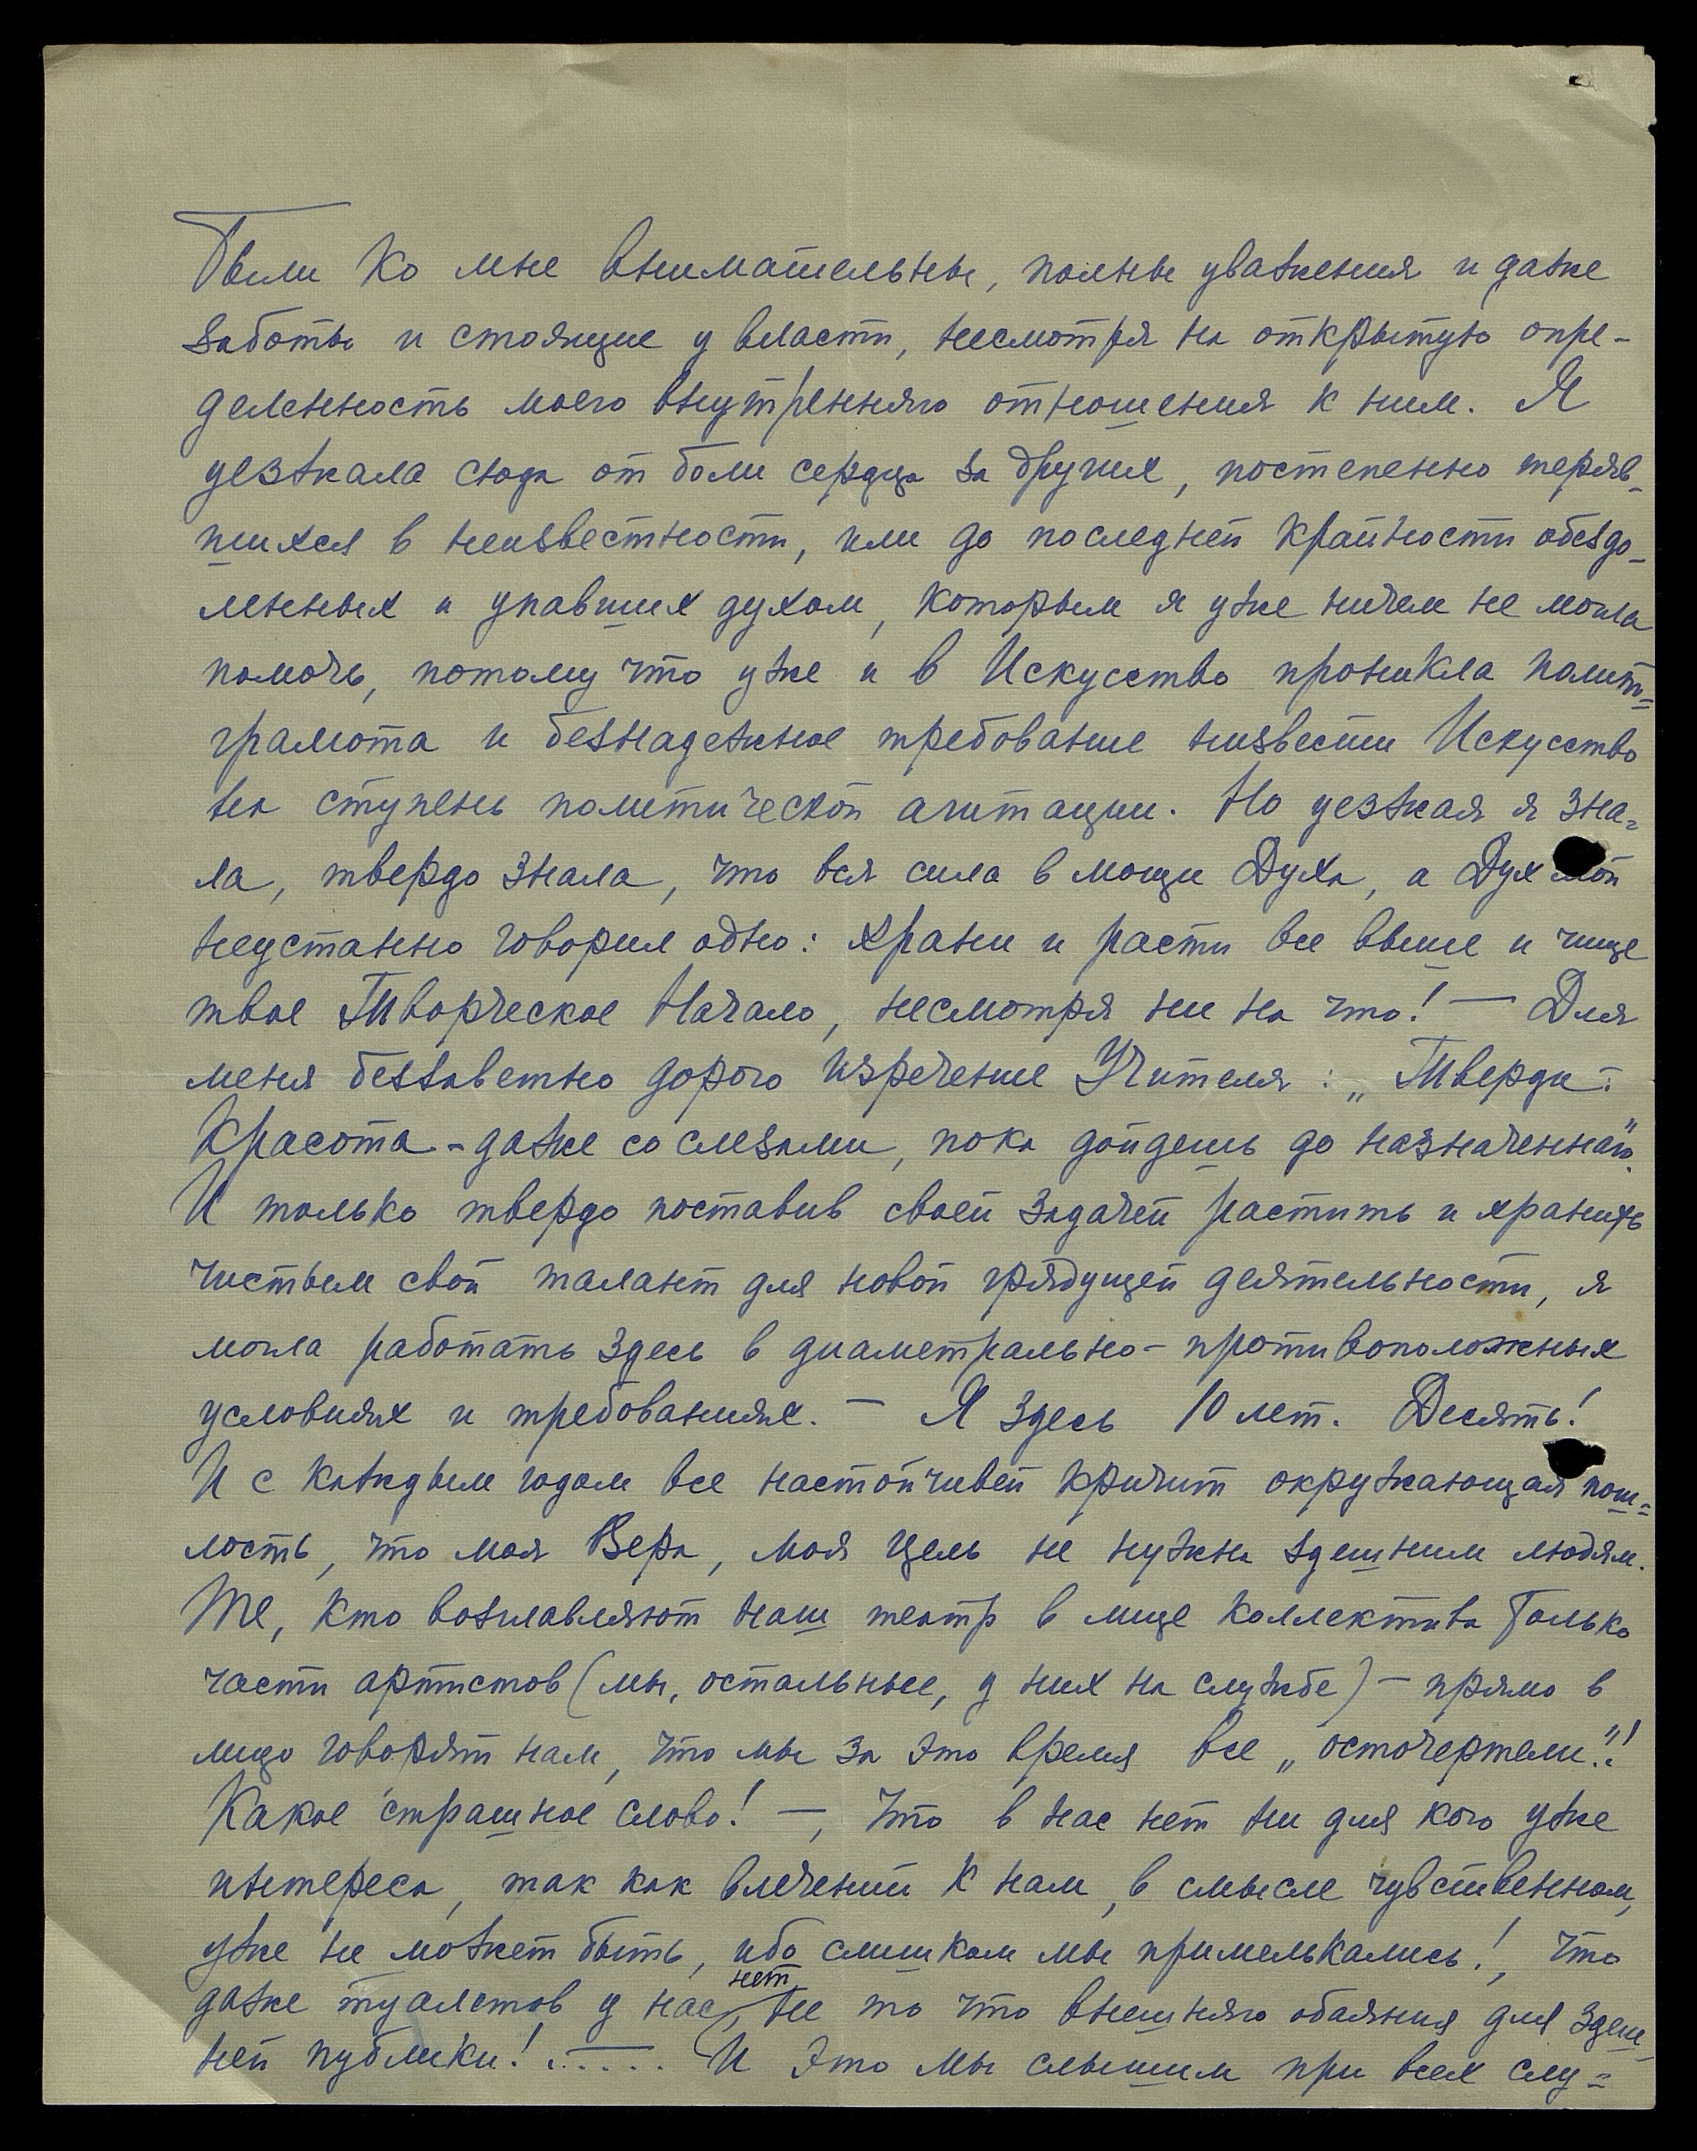 Были ко мне внимательны, полны уважения и даже
заботы и стоящие у власти, несмотря на открытую опре-
деленность моего внутренняго отношения к ним. Я
уезжала сюда от боли сердца за других, постепенно теряв-
шихся в неизвестности, или до последней крайности обездо-
ленных и упавших духом, которым я уже ничем не могла
помочь, потому что уже и в Искусство проникла полит-
грамота и безнадежное требование низвести Искусство
на ступень политической агитации. Но уезжая я зна-
ла, твердо знала, что вся сила в мощи Духа, а Дух мой
неустанно говорил одно: храни и расти все выше и чище
твое Творческое Начало, несмотря ни на что! — Для
меня беззаветно дорого изречение Учителя: „Тверди:
Красота - даже со слезами, пока дойдешь до назначеннаго".
И только твердо поставив своей задачей растить и хранить
чистым свой талант для новой грядущей деятельности, я
могла работать здесь в диаметрально-противоположных
условиях и требованиях. — Я здесь 10 лет. Десять!
И с каждым годом все настойчивей кричит окружающая пош-
лость, что моя Вера, моя цель не нужна здешним людям.
Те, кто возглавляют наш театр в лице коллектива только
части артистов (мы, остальные, у них на службе) - прямо в
лицо говорят нам, что мы за это время все „осточертели"!
Какое страшное слово! —, что в нас нет ни для кого уже
интереса, так как влечений к нам, в смысле чувственном,
уже не может быть, ибо слишком мы примелькались!, что
даже туалетов у нас нет, не то что внешняго обаяния для здеш-
ней публики! ...... И это мы слышим при всех слу-